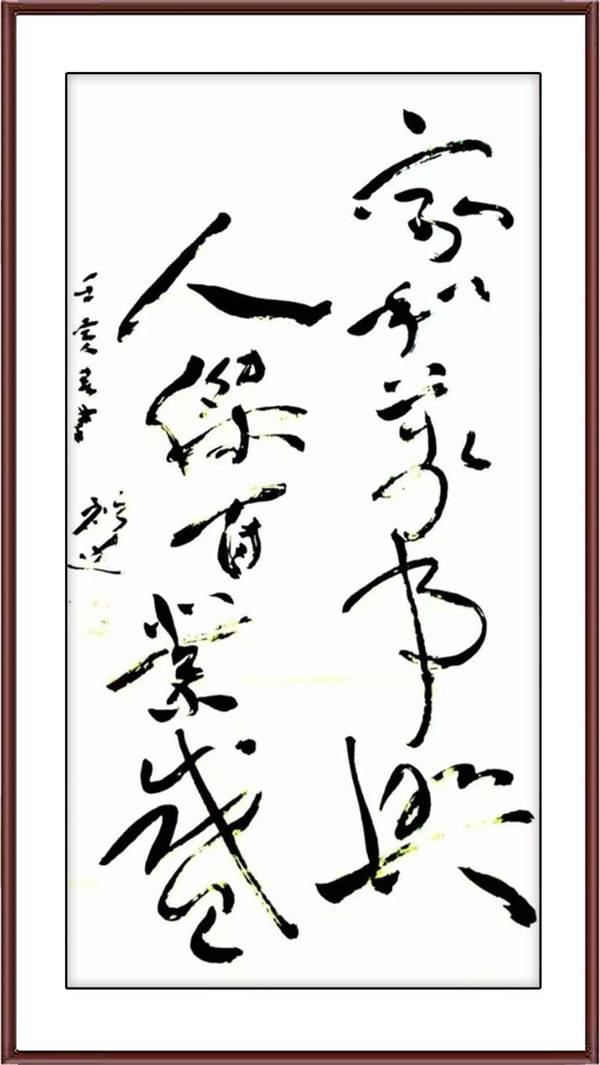 家和万事興
人傑百業盛
壬寅春書